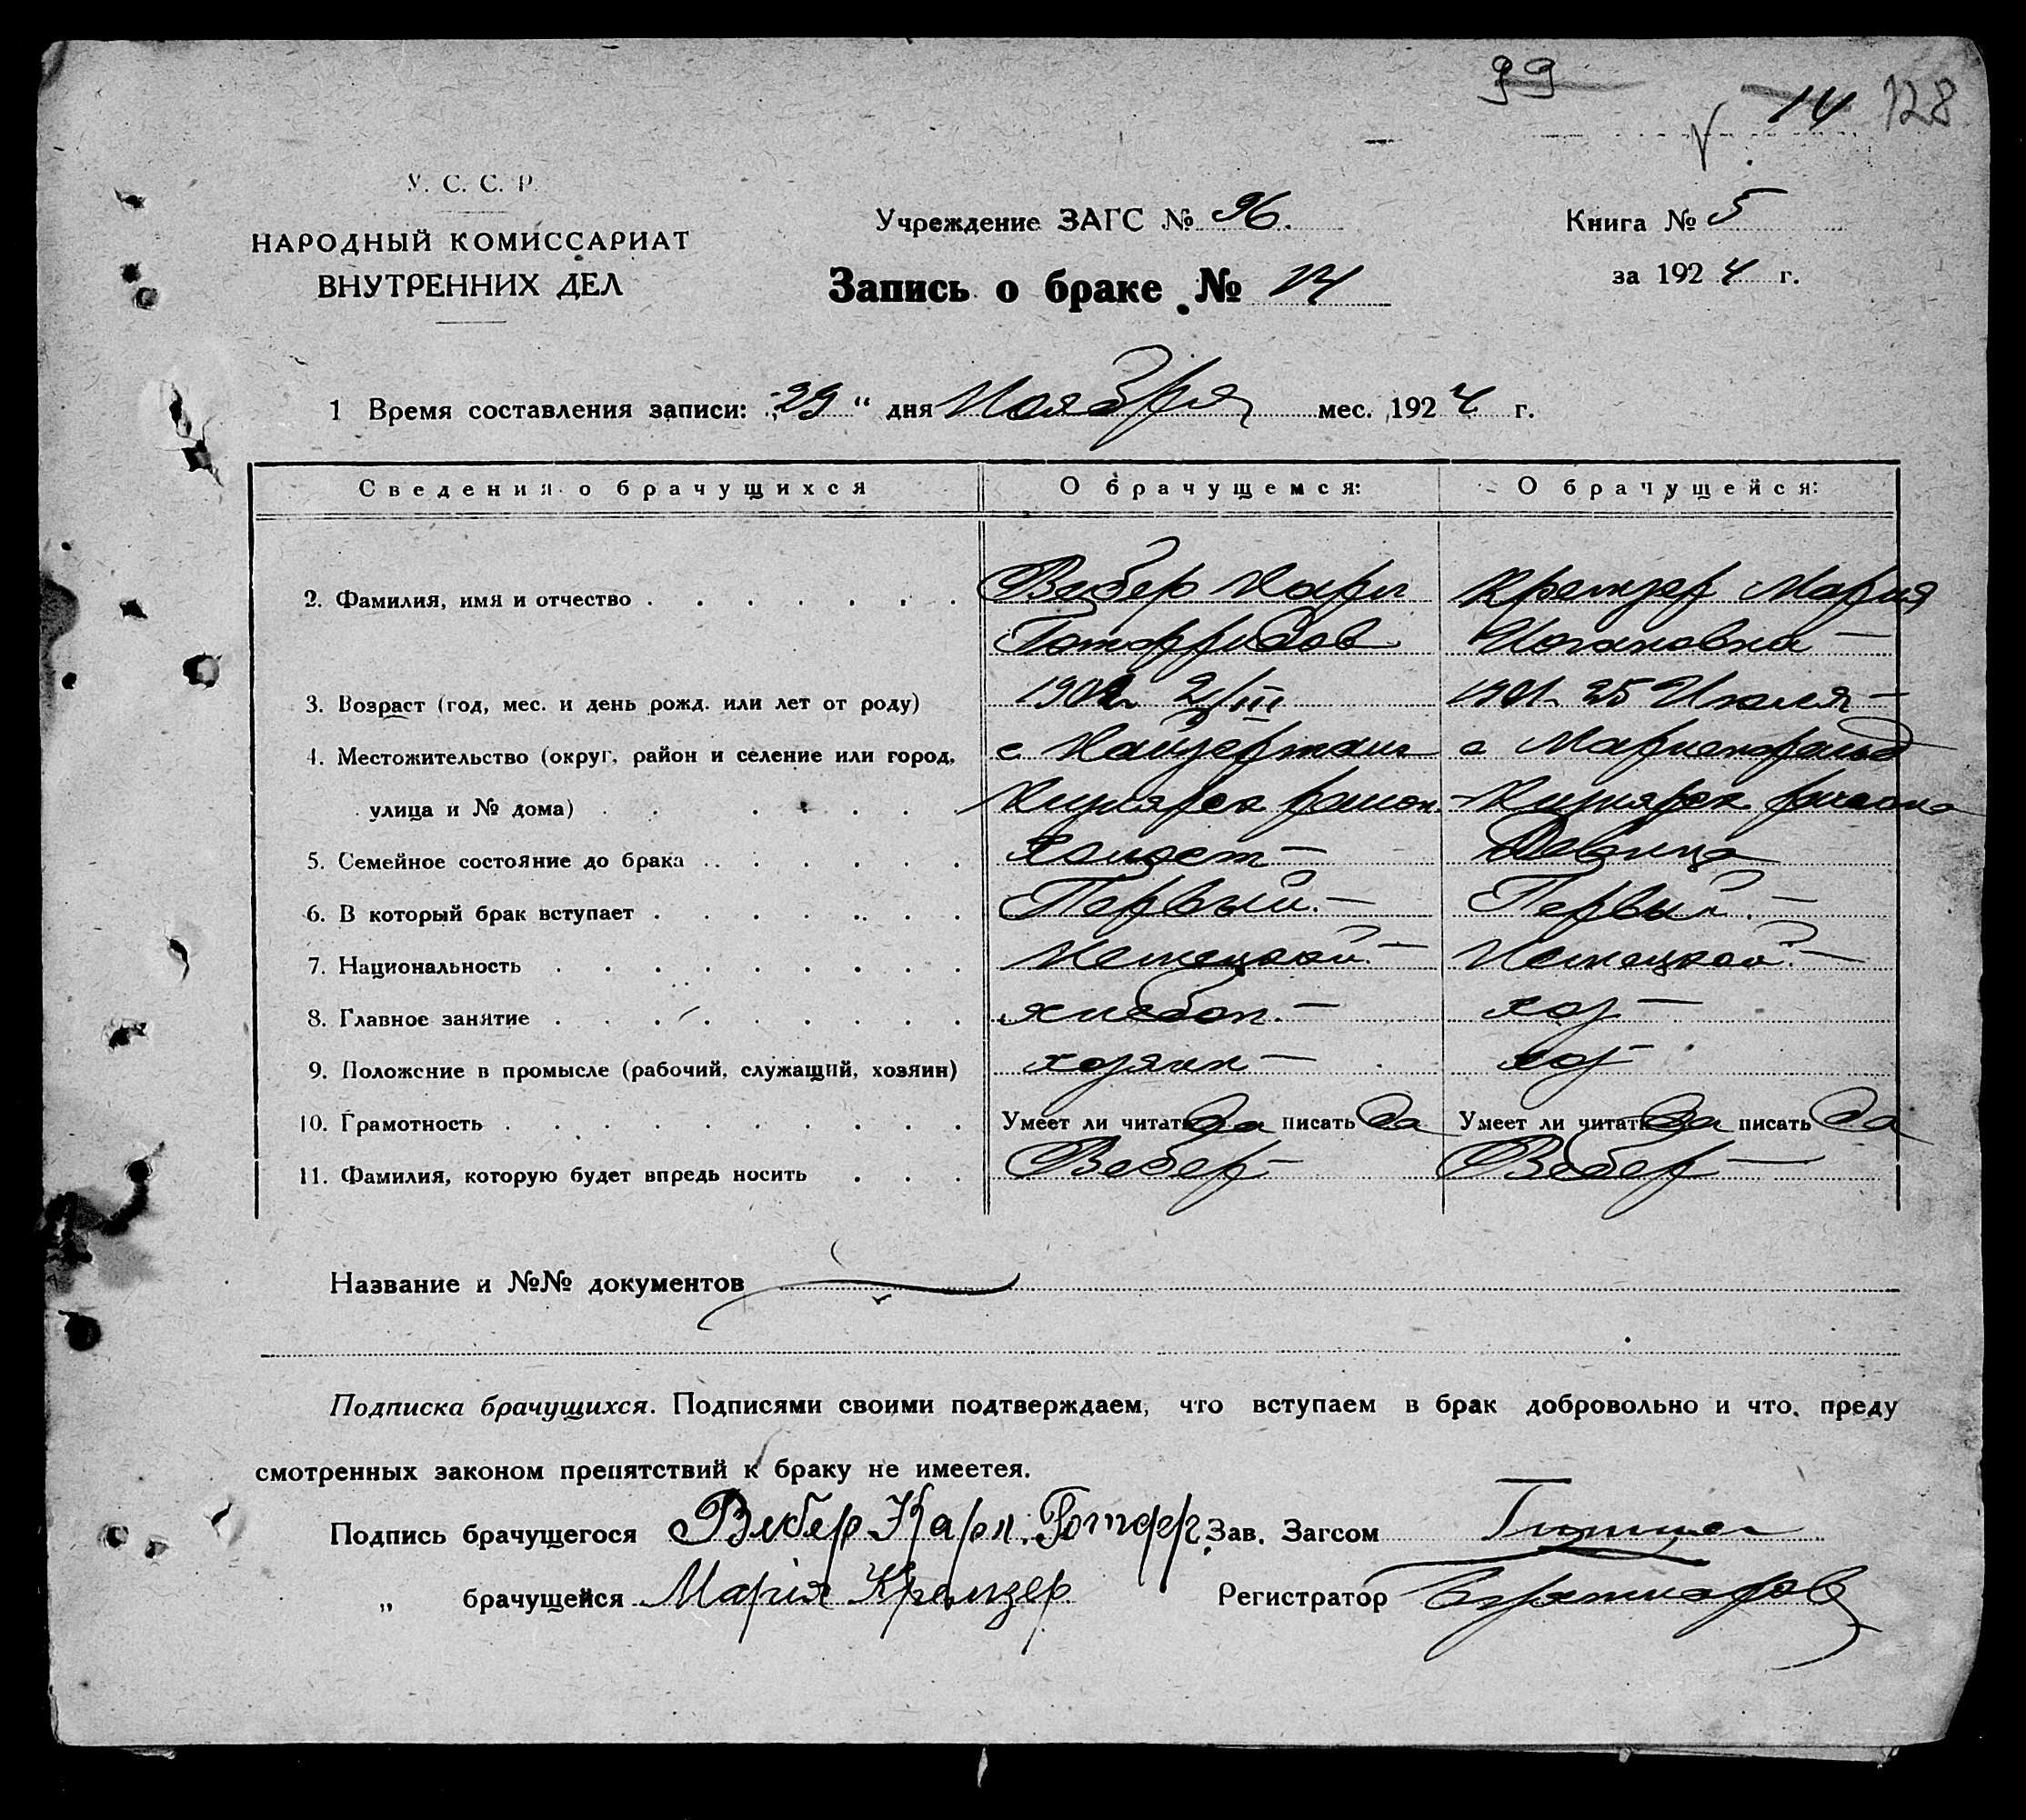 99
14 128
У. С. С. Р.
НАРОДНЫЙ КОМИССАРИАТ
ВНУТРЕННИХ ДЕЛ
Учреждение ЗАГС № 96.
Запись о браке № 14
Книга № 5
за 1924 г.
1 Время составления записи: „29“ дня Ноября мес. 1924 г.
Сведения о брачущихся О брачущемся: О брачущейся:
2. Фамилия, имя и отчество Вебер Карл Кремзер Мария
Готфридов Иогановна —
3. Возраст (год, мес. и день рожд. или лет от роду) 1902 2/III 1901 25 Июля —
4. Местожительство (округ, район и селение или город, с. Кайзерталь с Мариенфельд
улица и № дома)
5. Семейное состояние до брака Холост — Девица
6. В который брак вступает Первый. — Первый. —
7. Национальность Немецкой. — Немецкой. —
8. Главное занятие хлебоп. — хоз —
9. Положение в промысле (рабочий, служащий, хозяин) хозяин — хоз —
10. Грамотность Умеет ли читать да писать да Умеет ли читать да писать да
11. Фамилия, которую будет впредь носить Вебер — Вебер —
Название и №№ документов
Подписка брачущихся. Подписями своими подтверждаем, что вступаем в брак добровольно и что, преду
смотренных законом препятствий к браку не имеется.
Подпись брачущегося Вебер Карл. Готфр. Зав. Загсом
„ брачущейся Марія Кремзер Регистратор